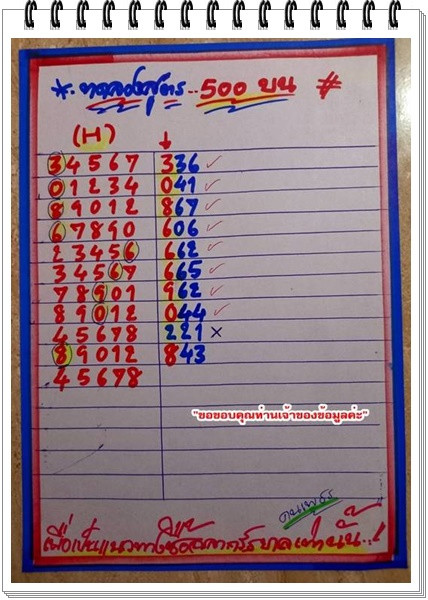 * ทดลองสูตร.. 500 บน #
(H) ↓
34567 336 ✓
01234 041 ✓
89012 867 ✓
67890 606 ✓
23456 662 ✓
34567 665 ✓
78901 962 ✓
89012 044 ✓
45678 221 ×
89012 843
45678
"ขอขอบคุณท่านเจ้าของข้อมูลค่ะ"
คนเพชร
เพื่อเป็นแนวทางซื้อสลากรัฐบาลเท่านั้น..!